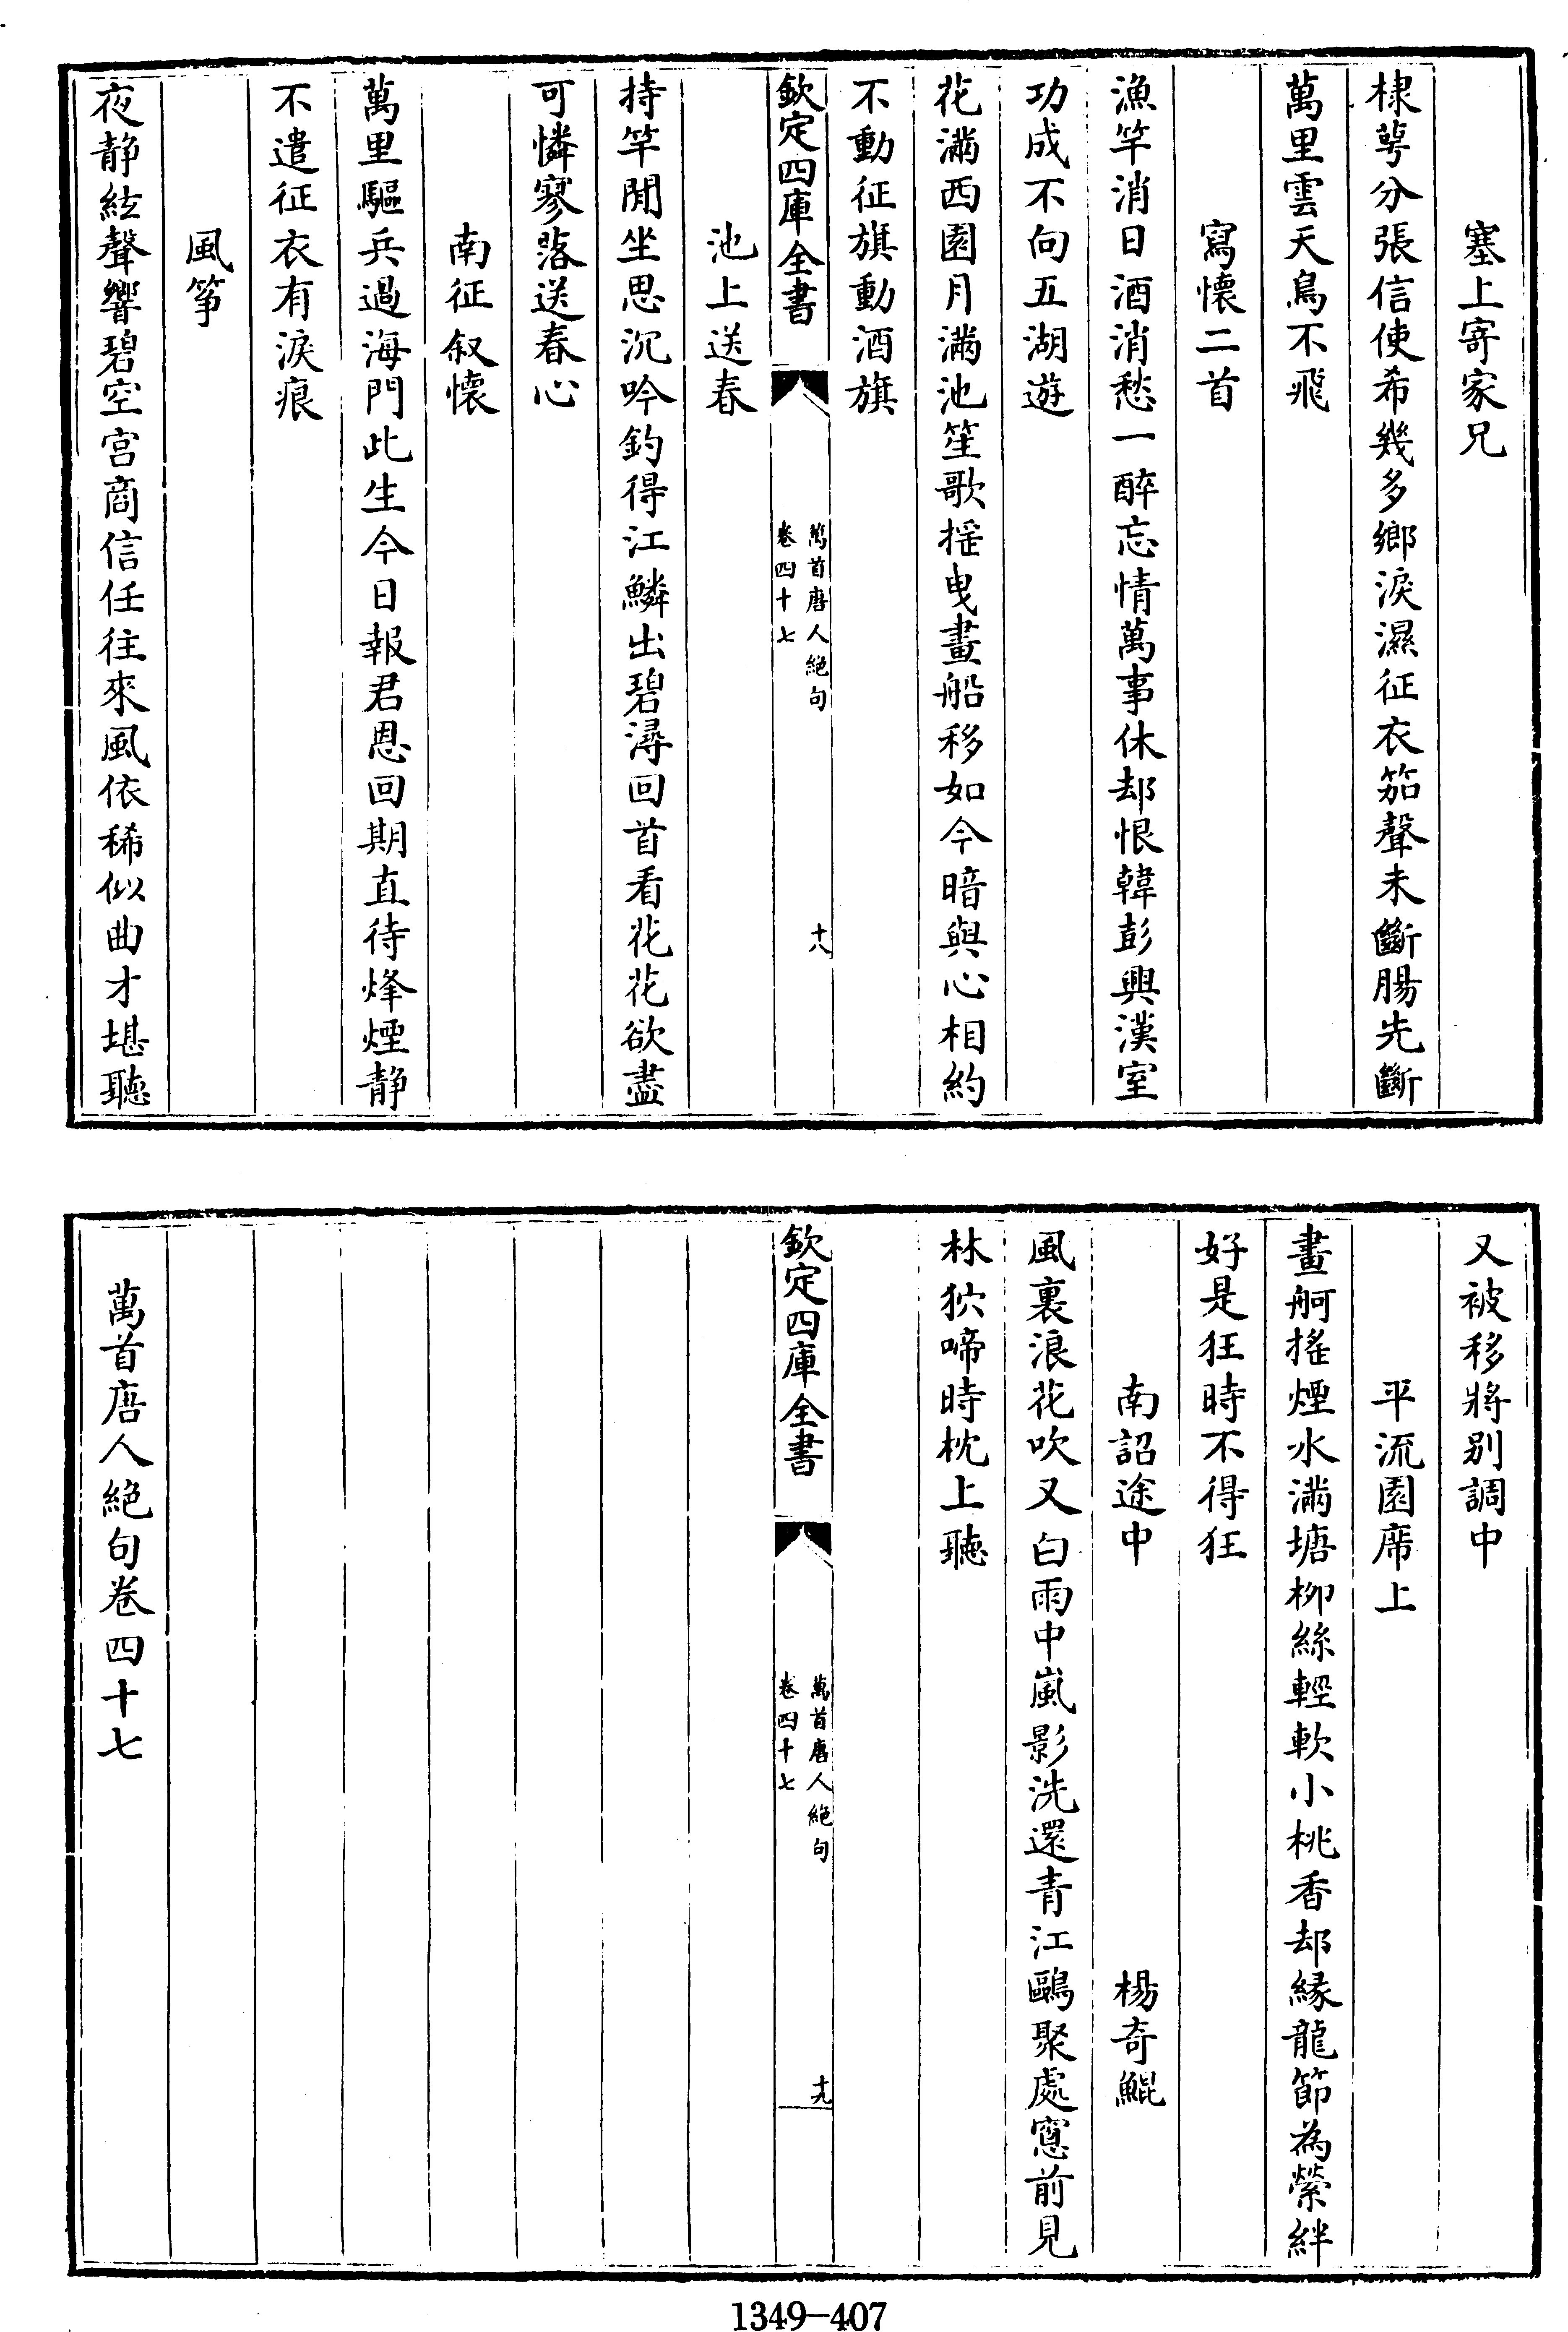 塞上寄家兄
棣萼分張信使希幾多鄉淚濕征衣笳聲未斷腸先斷
萬里雲天鳥不飛
寫懷二首
漁竿消日酒消愁一醉忘情萬事休却恨韓彭興漢室
功成不向五湖遊
花滿西園月滿池笙歌揺曳畫船移如今暗與心相約
不動征旗動酒旗
欽定四庫全書
萬首唐人絶句
卷四十七
十八
池上送春
持竿閒坐思沉吟釣得江鱗出碧潯回首看花花欲盡
可憐寥落送春心
南征叙懷
萬里驅兵過海門此生今日報君恩回期直待烽煙静
不遣征衣有淚痕
風筝
夜静絃聲響碧空宫商信任往來風依稀似曲才堪聽
又被移將别調中
平流園席上
畫舸搖煙水滿塘柳絲輕軟小桃香却縁龍節為縈絆
好是狂時不得狂
南詔途中 楊奇鯤
風裏浪花吹又白雨中嵐影洗還青江鷗聚處窻前見
林狖啼時枕上聽
欽定四庫全書
萬首唐人絶句
卷四十七
十九
萬首唐人絶句卷四十七
1349-407